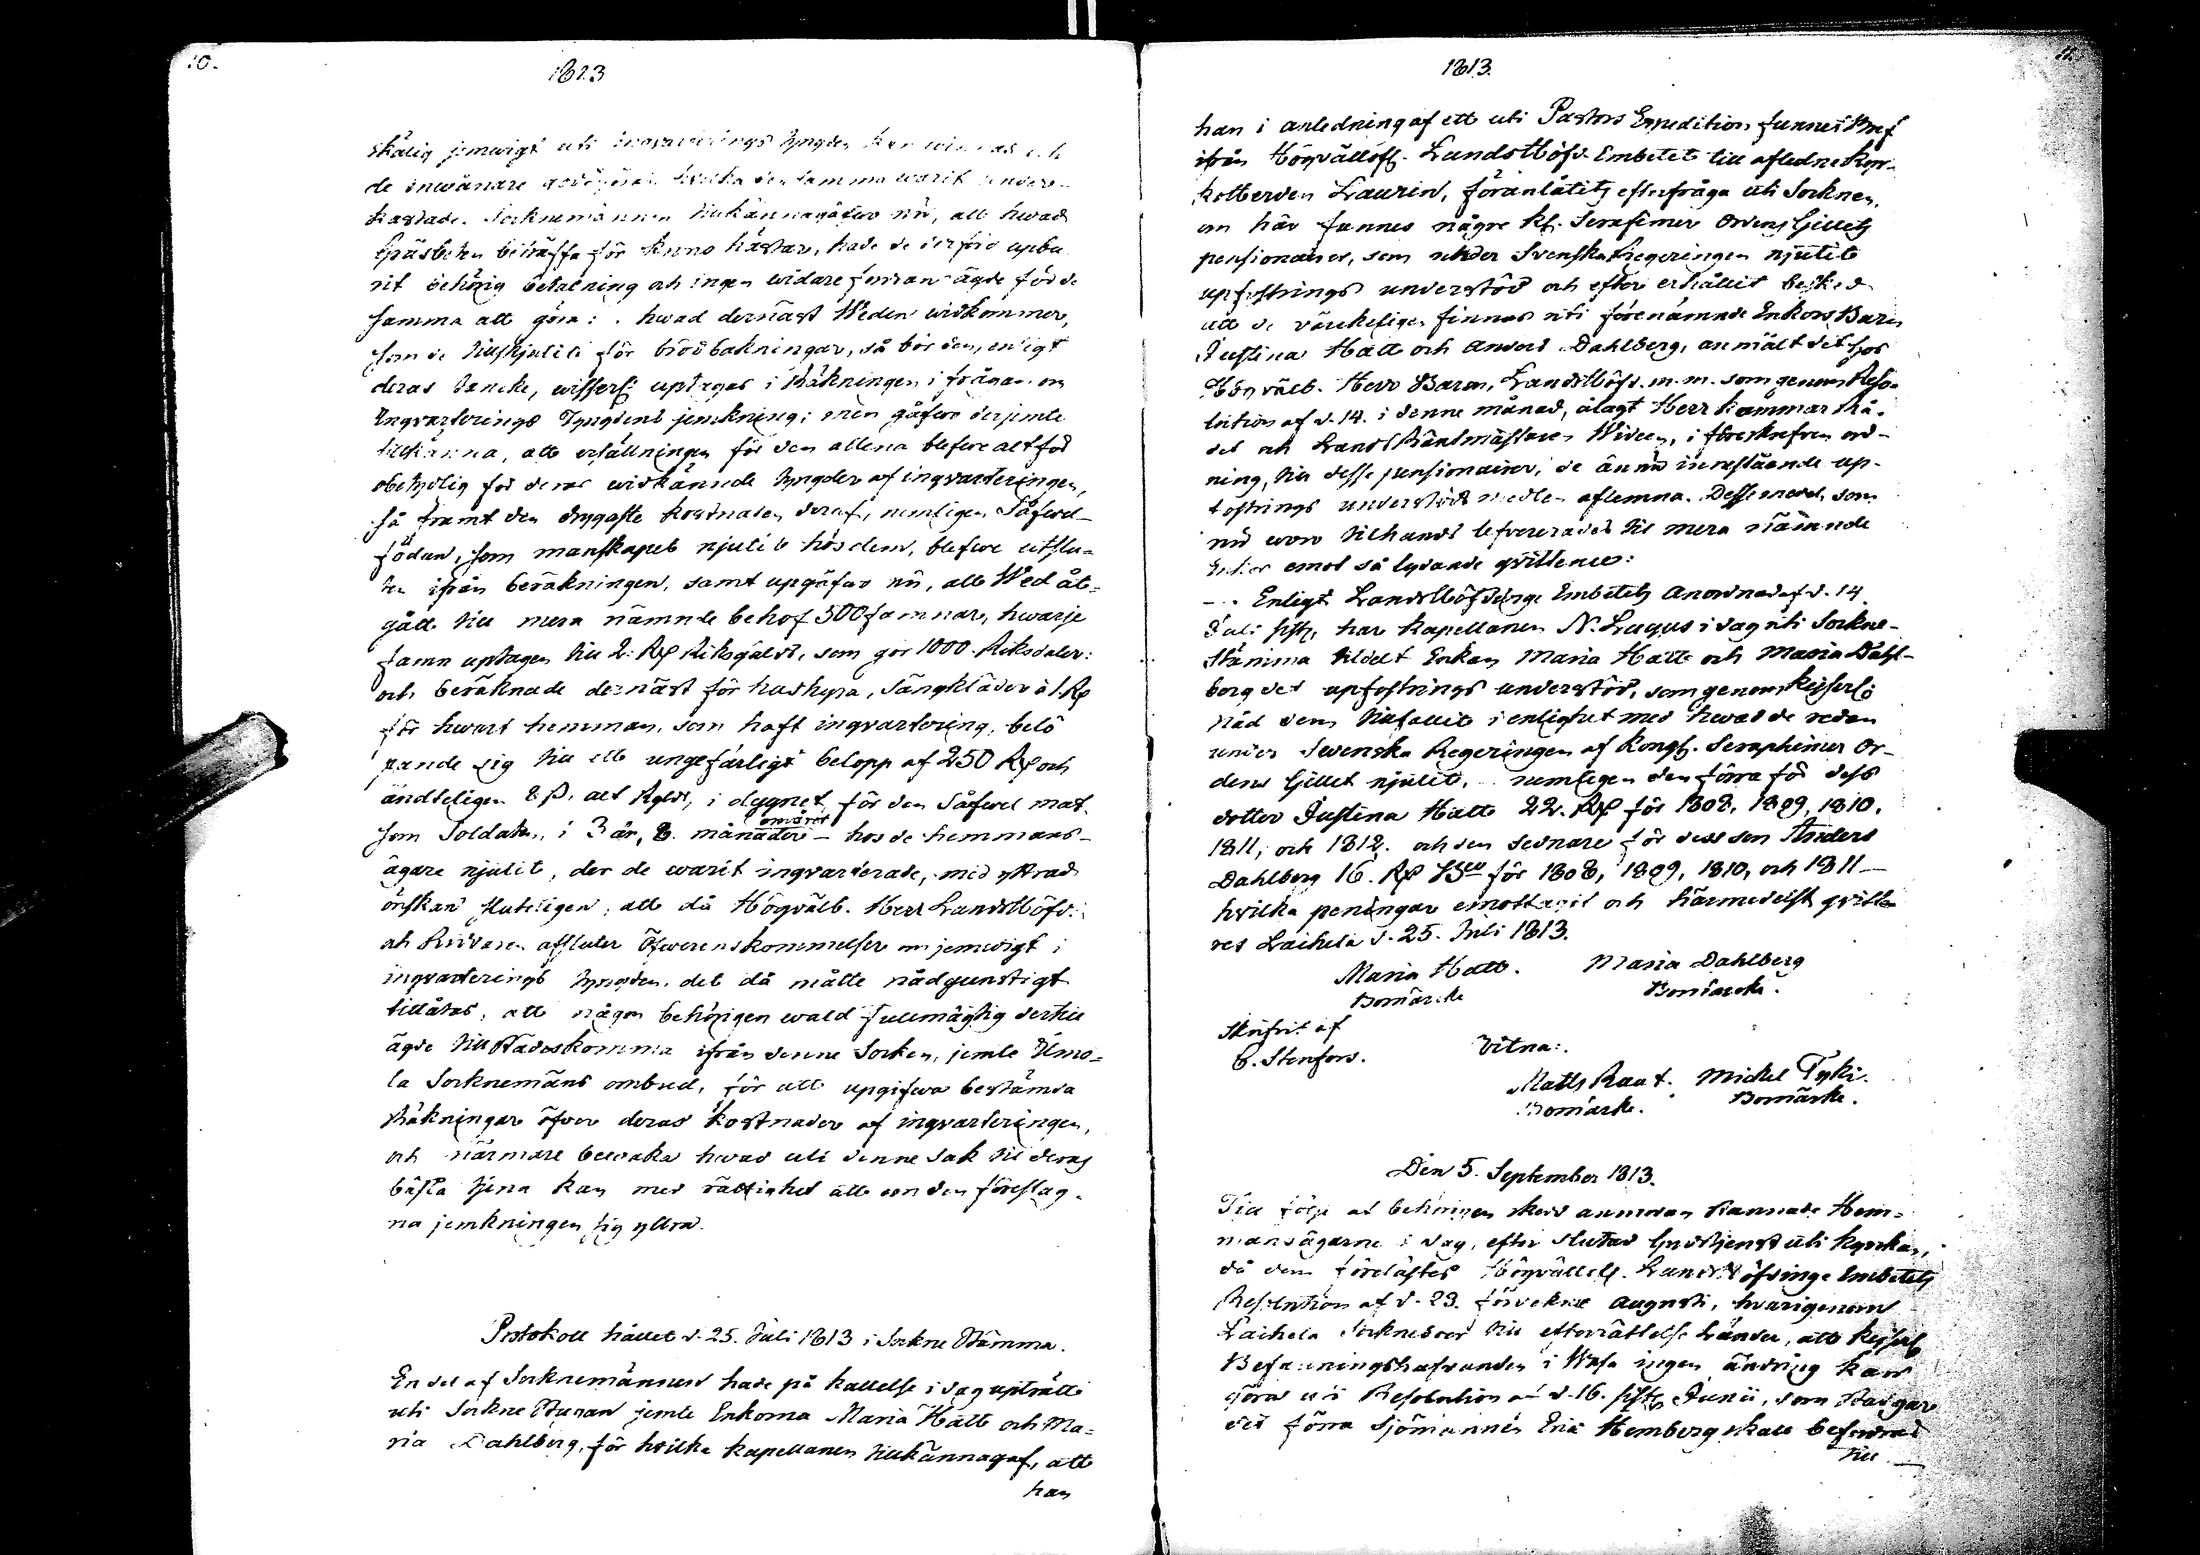 10.
1813
skälig jemwigt uti ingvarterings tyngden kan winnas och
de inwånare godtgöras hvilka den samma warit under-
kastade. Socknemännen tilkännagåfwo nu, att hwad
Gräsbeten beträffa för Krono hästar, hade de derför upbu-
rit behörig betalning och ingen widare fordran ägde för de
samma att göra: hwad dernäst Weden widkommer,
som de tillskjutit för brödbakningar, så bör den, enligt
deras tancke, wisserl: uptagas i Räkningen i frågan om
Ingvarterings Tyngdens jemkning; men gåfwo derjemte
tillkänna, att ersättningen för den allena blefwe alt för
obetydlig för deras widkännde tyngder af ingvarteringen,
så framt den drygaste kostnaden deraf, nemligen Såfwel-
födan, som manskapet njutit hos dem, blefwe utslu-
ten ifrån beräkningen, samt upgåfwo nu, att Wed åt-
gått till mera nämnde behof 500 famnar, hwarje
famn uptagen till 2. Rd Riksgäldt, som gör 1000 Riksdaler:
och beräknade dernäst för hushyra, sängkläder à 1 Rd
för hwart hemman, som haft ingvartering, belö-
pande sig till ett ungefärligt belopp af 250 Rd och
ändteligen 8 ß. alt Rgldt, i dygnet för den Såfwel mat
som Soldaten, i 3 år, 8. månader omåret — hos de hemmans-
ägare njutit, der de warit ingvarterade, med yttrad
önskan sluteligen, att då Högvälb. Herr Landshöfd:
och Riddaren afslutar Öfwerenskommelser om jemwigt i
ingvarterings tyngden, det då måtte nådgunstigt
tillåtas, att någon behörigen wald fullmägtig dertill
ägde tillstädeskomma ifrån denne Socken, jemte Ilmo-
la Socknemäns ombud, för att upgifwa bestämda
Räkningar öfver deras kostnader af ingvarteringen,
och närmare bewaka hwad uti denne sak till deras
bästa tjena kan med rättighet att om den föreslag-
na jemkningen sig yttra.
Protokoll hållet d. 25. Juli 1813 i Sockne Stämma.
En del af Socknemännen hade på kallelse i dag uptrådt
uti Sockne Stugan jemte Enkorna Maria Hatt och Ma-
ria Dahlberg, för hvilka kapellanen tillkännagaf, att
han
11.
1813.
han i anledning af ett uti Pastors Expedition funnet Bref
ifrån Högvällofl. Landshöfd. Embetet till afledne Kyr-
kolherden Laurin, föranlåtits efterfråga uti Socknen,
om här funnes någre kl. Serafimer Ordens Gillets
pensionairer, som under Svenska Regeringen njutit
upfostrings understöd och efter erhållit besked
att de värckeligen finnas uti förenämnde Enkors Barn
Justina Hatt och Anders Dahlberg, anmält det hos
Högvälb. Herr Baron, Landshöfd. m.m. som genom Reso-
lution af d. 14. i denne månad, ålagt Herr Kammar Rå-
det och Landt Räntmästaren Wideen, i föreskrefven ord-
ning, till desse pensionairer, de ännu innestående up-
fostrings understöds medlen aflemna. Desse medel, som
nu woro tilhands lefvererades till mera nämnde
Enkor emot så lydande qvittence:
— Enligt Landshöfdinge Embetets Anordnad af d. 14
Juli sistl. har Kapellanen N. Lagus i dag uti Sockne-
Stämma tildelt Enkan Maria Hatt och Maria Dahl-
berg det upfostrings understöd, som genom Kejserl:
Nåd dem tillfallit i enlighet med hwad de redan
under Swenska Regeringen af Kongl. Seraphimer Or-
dens Gillet njutit, nemligen den förra för dess
dotter Justina Hatt 22. Rd för 1808, 1809, 1810,
1811, och 1812. och den sednare för dess son Anders
Dahlberg 16. Rd Bco för 1808, 1809, 1810, och 1811 —
hvilka penningar emottagit och härmedelst qvitte-
res Laihela d. 25. Juli 1813.
Maria Hatt.
Bomärcke
Maria Dahlberg
Bomärcke.
Skrifvit af
C. Stenfors.
Vitna:
Matts Raut.
Bomärke.
Michel Tyki.
Bomärke.
Den 5. September 1813.
Till följe af behörigen skedd anmodan stannade Hem-
mansägarne i dag, efter slutad Gudstjenst uti kyrkan,
då dem förelästes Högvällofl. Landshöfdinge Embetets
Resolution af d. 23. förvekne Augusti, hvarigenom
Laihela Socknebor till efterrättelse länder, att Kejserl.
Befallningshafvanden i Wasa ingen ändring kan
göra uti Resolution af d. 16. sistl. Junii, som stadgar
det förra sjömannen Eric Hemberg skall befordras
till —